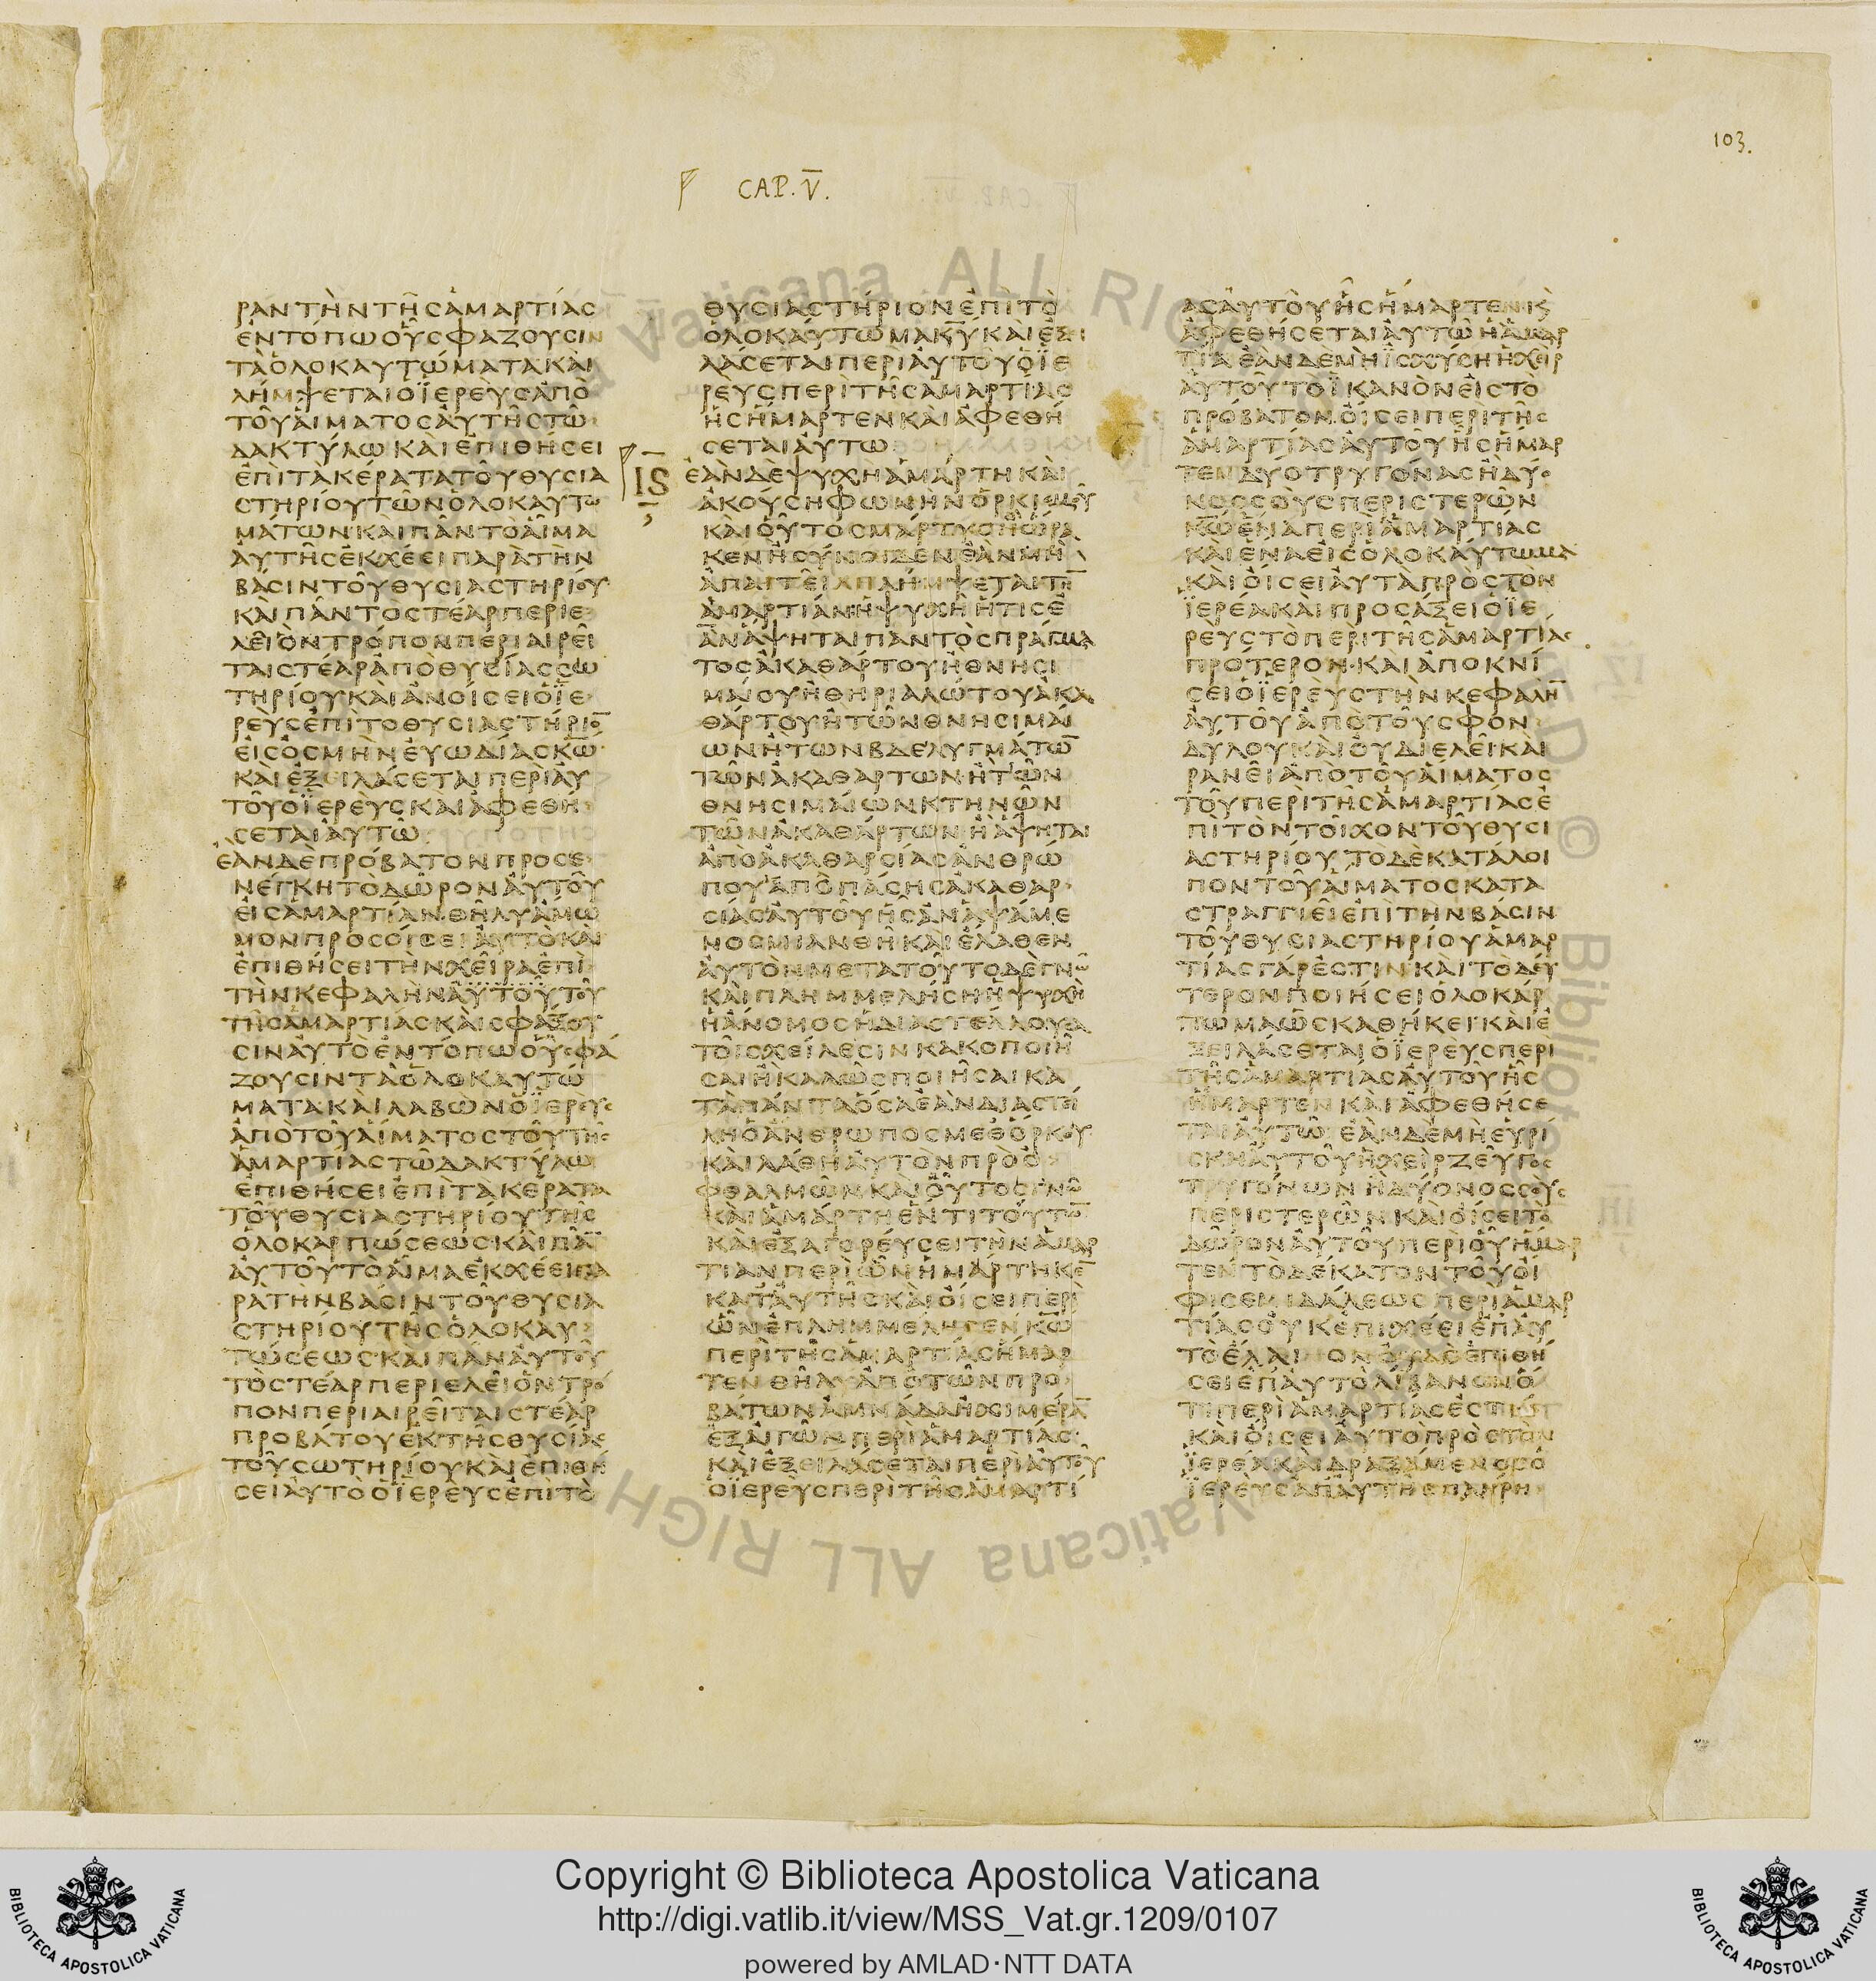 103.
CAP. V̅.
ΡΑΝΤΗΝΤΗΣΑΜΑΡΤΙΑΣ
ΕΝΤΟΠΩΟΥΣΦΑΖΟΥΣΙΝ
ΤΑΟΛΟΚΑΥΤΩΜΑΤΑΚΑΙ
ΛΗΜΨΕΤΑΙΟΪΕΡΕΥΣΑΠΟ
ΤΟΥΑΙΜΑΤΟΣΑΥΤΗΣΤΩ
ΔΑΚΤΥΛΩΚΑΙΕΠΙΘΗΣΕΙ
ΕΠΙΤΑΚΕΡΑΤΑΤΟΥΘΥΣΙΑ
ΣΤΗΡΙΟΥΤΩΝΟΛΟΚΑΥΤΩ
ΜΑΤΩΝΚΑΙΠΑΝΤΟΑΙΜΑ
ΑΥΤΗΣΕΚΧΕΕΙΠΑΡΑΤΗΝ
ΒΑΣΙΝΤΟΥΘΥΣΙΑΣΤΗΡΙΟΥ
ΚΑΙΠΑΝΤΟΣΤΕΑΡΠΕΡΙΕ
ΛΕΙΟΝΤΡΟΠΟΝΠΕΡΙΑΙΡΕΙ
ΤΑΙΣΤΕΑΡΑΠΟΘΥΣΙΑΣΣΩ
ΤΗΡΙΟΥΚΑΙΑΝΟΙΣΕΙΟΪΕ
ΡΕΥΣΕΠΙΤΟΘΥΣΙΑΣΤΗΡΙΟ̅
ΕΙΣΟΣΜΗΝΕΥΩΔΙΑΣΚ̅Ω̅
ΚΑΙΕΞΕΙΛΑΣΕΤΑΙΠΕΡΙΑΥ
ΤΟΥΟΪΕΡΕΥΣΚΑΙΑΦΕΘΗ
ΣΕΤΑΙΑΥΤΩ
ΕΑΝΔΕΠΡΟΒΑΤΟΝΠΡΟΣΕ
ΝΕΓΚΗΤΟΔΩΡΟΝΑΥΤΟΥ
ΕΙΣΑΜΑΡΤΙΑΝΘΗΛΥΑΜΩ
ΜΟΝΠΡΟΣΟΙΣΕΙΑΥΤΟΚΑΙ
ΕΠΙΘΗΣΕΙΤΗΝΧΕΙΡΑΕΠΙ
ΤΗΝΚΕΦΑΛΗΝΑΥΤΟΥΤΟΥ
ΤΗΣΑΜΑΡΤΙΑΣΚΑΙΣΦΑΞΟΥ
ΣΙΝΑΥΤΟΕΝΤΟΠΩΟΥΣΦΑ
ΖΟΥΣΙΝΤΑΟΛΟΚΑΥΤΩ
ΜΑΤΑΚΑΙΛΑΒΩΝΟΪΕΡΕΥΣ
ΑΠΟΤΟΥΑΙΜΑΤΟΣΤΟΥΤΗΣ
ΑΜΑΡΤΙΑΣΤΩΔΑΚΤΥΛΩ
ΕΠΙΘΗΣΕΙΕΠΙΤΑΚΕΡΑΤΑ
ΤΟΥΘΥΣΙΑΣΤΗΡΙΟΥΤΗΣ
ΟΛΟΚΑΡΠΩΣΕΩΣΚΑΙΠΑ̅
ΑΥΤΟΥΤΟΑΙΜΑΕΚΧΕΕΙΠΑ
ΡΑΤΗΝΒΑΣΙΝΤΟΥΘΥΣΙΑ
ΣΤΗΡΙΟΥΤΗΣΟΛΟΚΑΥ
ΤΩΣΕΩΣΚΑΙΠΑΝΑΥΤΟΥ
ΤΟΣΤΕΑΡΠΕΡΙΕΛΕΙΟΝΤΡΟ
ΠΟΝΠΕΡΙΑΙΡΕΙΤΑΙΣΤΕΑΡ
ΠΡΟΒΑΤΟΥΕΚΤΗΣΘΥΣΙΑΣ
ΤΟΥΣΩΤΗΡΙΟΥΚΑΙΕΠΙΘΗ
ΣΕΙΑΥΤΟΟΪΕΡΕΥΣΕΠΙΤΟ
ΘΥΣΙΑΣΤΗΡΙΟΝΕΠΙΤΟ
ΟΛΟΚΑΥΤΩΜΑΚ̅Υ̅ΚΑΙΕΞΕΙ
ΛΑΣΕΤΑΙΠΕΡΙΑΥΤΟΥΟΪΕ
ΡΕΥΣΠΕΡΙΤΗΣΑΜΑΡΤΙΑΣ
ΗΣΗΜΑΡΤΕΝΚΑΙΑΦΕΘΗ
ΣΕΤΑΙΑΥΤΩ
ΙϚ ΕΑΝΔΕΨΥΧΗΑΜΑΡΤΗΚΑΙ
ΑΚΟΥΣΗΦΩΝΗΝΟΡΚΙΣΜΟΥ
ΚΑΙΟΥΤΟΣΜΑΡΤΥΣΗΕΩΡΑ
ΚΕΝΗΣΥΝΟΙΔΕΝΕΑΝΜΗ
ΑΠΑΓΓΕΙΛΗΛΗΜΨΕΤΑΙΤΗ̅
ΑΜΑΡΤΙΑΝΗΨΥΧΗΗΤΙΣΕ
ΑΝΑΨΗΤΑΙΠΑΝΤΟΣΠΡΑΓΜΑ
ΤΟΣΑΚΑΘΑΡΤΟΥΗΘΝΗΣΙ
ΜΑΙΟΥΗΘΗΡΙΑΛΩΤΟΥΑΚΑ
ΘΑΡΤΟΥΗΤΩΝΘΝΗΣΙΜΑΙ
ΩΝΗΤΩΝΒΔΕΛΥΓΜΑΤΩ̅
ΤΩΝΑΚΑΘΑΡΤΩΝΗΤΩΝ
ΘΝΗΣΙΜΑΙΩΝΚΤΗΝΩΝ
ΤΩΝΑΚΑΘΑΡΤΩΝΗΑΨΗΤΑΙ
ΑΠΟΑΚΑΘΑΡΣΙΑΣΑΝΘΡΩ
ΠΟΥΑΠΟΠΑΣΗΣΑΚΑΘΑΡ
ΣΙΑΣΑΥΤΟΥΗΣΑΝΑΨΑΜΕ
ΝΟΣΜΙΑΝΘΗΚΑΙΕΛΑΘΕΝ
ΑΥΤΟΝΜΕΤΑΤΟΥΤΟΔΕΓΝΩ
ΚΑΙΠΛΗΜΜΕΛΗΣΗΗΨΥΧΗ
ΗΑΝΟΜΟΣΗΔΙΑΣΤΕΛΛΟΥΣΑ
ΤΟΙΣΧΕΙΛΕΣΙΝΚΑΚΟΠΟΙΗ
ΣΑΙΗΚΑΛΩΣΠΟΙΗΣΑΙΚΑ
ΤΑΠΑΝΤΑΟΣΑΕΑΝΔΙΑΣΤΕΙ
ΛΗΟΑΝΘΡΩΠΟΣΜΕΘΟΡΚΟΥ
ΚΑΙΛΑΘΗΑΥΤΟΝΠΡΟΟ
ΦΘΑΛΜΩΝΚΑΙΟΥΤΟΣΓΝΩ
ΚΑΙΑΜΑΡΤΗΕΝΤΙΤΟΥΤΩ̅
ΚΑΙΕΞΑΓΟΡΕΥΣΕΙΤΗΝΑΜΑΡ
ΤΙΑΝΠΕΡΙΩΝΗΜΑΡΤΗΚΕ̅
ΚΑΤΑΥΤΗΣΚΑΙΟΙΣΕΙΠΕΡΙ
ΩΝΕΠΛΗΜΜΕΛΗΣΕΝΚ̅Ω̅
ΠΕΡΙΤΗΣΑΜΑΡΤΙΑΣΗΣΗΜΑΡ
ΤΕΝΘΗΛΥΑΠΟΤΩΝΠΡΟ
ΒΑΤΩΝΑΜΝΑΔΑΗΧΙΜΕΡΑ̅
ΕΞΑΙΓΩΝΠΕΡΙΑΜΑΡΤΙΑΣ
ΚΑΙΕΞΕΙΛΑΣΕΤΑΙΠΕΡΙΑΥΤΟΥ
ΟΪΕΡΕΥΣΠΕΡΙΤΗΣΑΜΑΡΤΙ
ΑΣΑΥΤΟΥΗΣΗΜΑΡΤΕΝΚΣ
ΑΦΕΘΗΣΕΤΑΙΑΥΤΩΗΑΜΑΡ
ΤΙΑΕΑΝΔΕΜΗΪΣΧΥΣΗΗΧΕΙΡ
ΑΥΤΟΥΤΟΪΚΑΝΟΝΕΙΣΤΟ
ΠΡΟΒΑΤΟΝΟΙΣΕΙΠΕΡΙΤΗΣ
ΑΜΑΡΤΙΑΣΑΥΤΟΥΗΣΗΜΑΡ
ΤΕΝΔΥΟΤΡΥΓΟΝΑΣΗΔΥΟ
ΝΟΣΣΟΥΣΠΕΡΙΣΤΕΡΩΝ
Κ̅Ω̅ΕΝΑΠΕΡΙΑΜΑΡΤΙΑΣ
ΚΑΙΕΝΑΕΙΣΟΛΟΚΑΥΤΩΜΑ
ΚΑΙΟΙΣΕΙΑΥΤΑΠΡΟΣΤΟΝ
ΪΕΡΕΑΚΑΙΠΡΟΣΑΞΕΙΟΪΕ
ΡΕΥΣΤΟΠΕΡΙΤΗΣΑΜΑΡΤΙΑΣ
ΠΡΟΤΕΡΟΝ·ΚΑΙΑΠΟΚΝΙ
ΣΕΙΟΪΕΡΕΥΣΤΗΝΚΕΦΑΛΗ̅
ΑΥΤΟΥΑΠΟΤΟΥΣΦΟΝ
ΔΥΛΟΥΚΑΙΟΥΔΙΕΛΕΙΚΑΙ
ΡΑΝΕΙΑΠΟΤΟΥΑΙΜΑΤΟΣ
ΤΟΥΠΕΡΙΤΗΣΑΜΑΡΤΙΑΣΕ
ΠΙΤΟΝΤΟΙΧΟΝΤΟΥΘΥΣΙ
ΑΣΤΗΡΙΟΥΤΟΔΕΚΑΤΑΛΟΙ
ΠΟΝΤΟΥΑΙΜΑΤΟΣΚΑΤΑ
ΣΤΡΑΓΓΙΕΙΕΠΙΤΗΝΒΑΣΙΝ
ΤΟΥΘΥΣΙΑΣΤΗΡΙΟΥΑΜΑΡ
ΤΙΑΣΓΑΡΕΣΤΙΝΚΑΙΤΟΔΕΥ
ΤΕΡΟΝΠΟΙΗΣΕΙΟΛΟΚΑΡ
ΠΩΜΑΩΣΚΑΘΗΚΕΙΚΑΙΕ
ΞΕΙΛΑΣΕΤΑΙΟΪΕΡΕΥΣΠΕΡΙ
ΤΗΣΑΜΑΡΤΙΑΣΑΥΤΟΥΗΣ
ΗΜΑΡΤΕΝΚΑΙΑΦΕΘΗΣΕ
ΤΑΙΑΥΤΩΕΑΝΔΕΜΗΕΥΡΙ
ΣΚΗΑΥΤΟΥΗΧΕΙΡΖΕΥΓΟΣ
ΤΡΥΓΟΝΩΝΗΔΥΟΝΟΣΣΟΥΣ
ΠΕΡΙΣΤΕΡΩΝΚΑΙΟΙΣΕΙΤΟ
ΔΩΡΟΝΑΥΤΟΥΠΕΡΙΟΥΗΜΑΡ
ΤΕΝΤΟΔΕΚΑΤΟΝΤΟΥΟΙ
ΦΙΣΕΜΙΔΑΛΕΩΣΠΕΡΙΑΜΑΡ
ΤΙΑΣΟΥΚΕΠΙΧΕΕΙΕΠΑΥ
ΤΟΕΛΑΙΟΝΟΥΔΕΕΠΙΘΗ
ΣΕΙΕΠΑΥΤΟΛΙΒΑΝΟΝΟ
ΤΙΠΕΡΙΑΜΑΡΤΙΑΣΕΣΤΙ
ΚΑΙΟΙΣΕΙΑΥΤΟΠΡΟΣΤΟΝ
ΪΕΡΕΑΚΑΙΔΡΑΞΑΜΕΝΟΣΟ
ΪΕΡΕΥΣΑΠΑΥΤΗΣΠΛΗΡΗ
Copyright © Biblioteca Apostolica Vaticana
http://digi.vatlib.it/view/MSS_Vat.gr.1209/0107
powered by AMLAD·NTT DATA
BIBLIOTECA APOSTOLICA VATICANA
BIBLIOTECA APOSTOLICA VATICANA